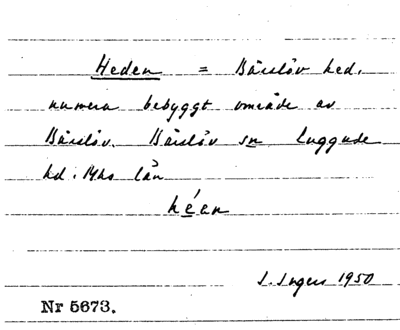 Heden = Bårslöv hed.
numera bebyggt område av
Bårslöv. Bårslöv sn Luggude
hd. Mhs län
héan
I. Ingers 1950
Nr 5673.